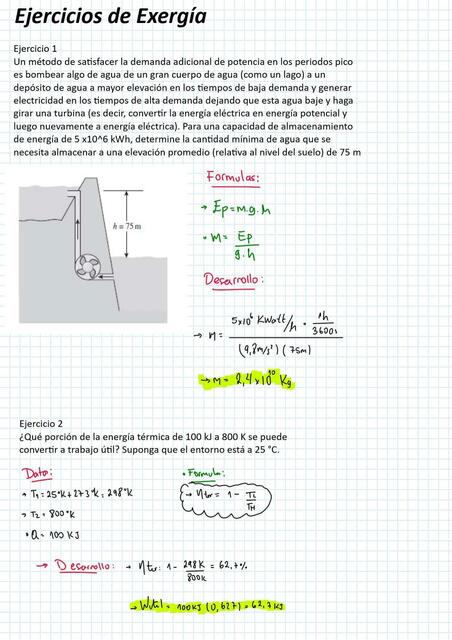 Ejercicios de Exergía
Ejercicio 1
Un método de satisfacer la demanda adicional de potencia en los periodos pico
es bombear algo de agua de un gran cuerpo de agua (como un lago) a un
depósito de agua a mayor elevación en los tiempos de baja demanda y generar
electricidad en los tiempos de alta demanda dejando que esta agua baje y haga
girar una turbina (es decir, convertir la energía eléctrica en energía potencial y
luego nuevamente a energía eléctrica). Para una capacidad de almacenamiento
de energía de 5 x10^6 kWh, determine la cantidad mínima de agua que se
necesita almacenar a una elevación promedio (relativa al nivel del suelo) de 75 m
Formulas:
→ Ep = m.g.h
h = 75 m
• m = Ep / g.h
Desarrollo:
→ m = 5x10⁶ Kwatt/h · 1h/3600s / (9,8 m/s²) (75m)
→ m = 2,4 x10¹⁰ Kg
Ejercicio 2
¿Qué porción de la energía térmica de 100 kJ a 800 K se puede
convertir a trabajo útil? Suponga que el entorno está a 25 °C.
Datos:
• Formula:
→ T1 = 25°K + 273°K = 298°K
→ ηter = 1 - TL/TH
→ T2 = 800°K
• Q = 100 KJ
→ Desarrollo: → ηter: 1 - 298K/800K = 62,7%
→ Wútil = 100KJ (0,627) = 62,7 KJ